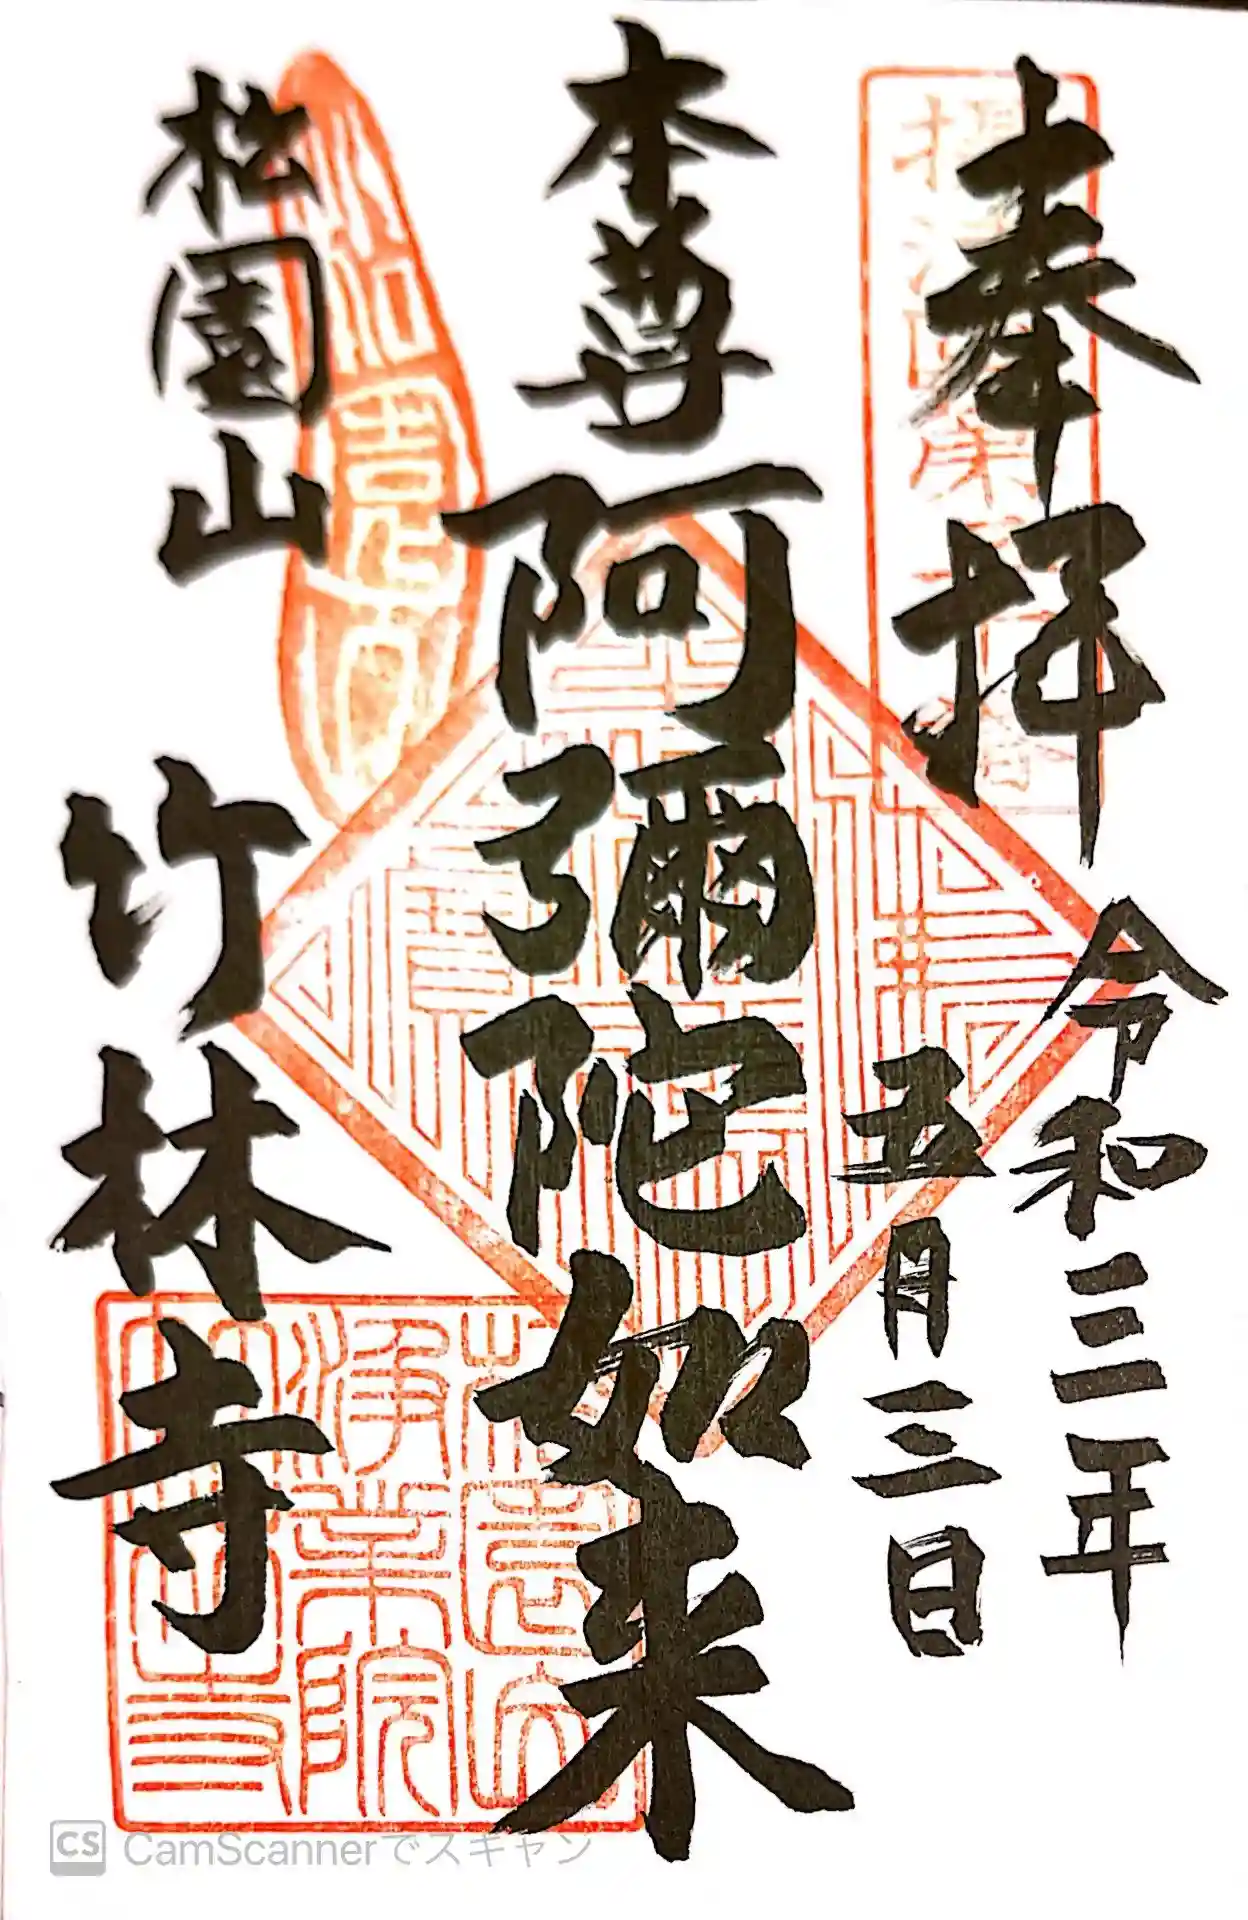 奉拝
令和三年
五月三日
本尊
阿彌陀如来
松園山
竹林寺
松園山
浄業院
竹林寺
CS CamScannerでスキャン